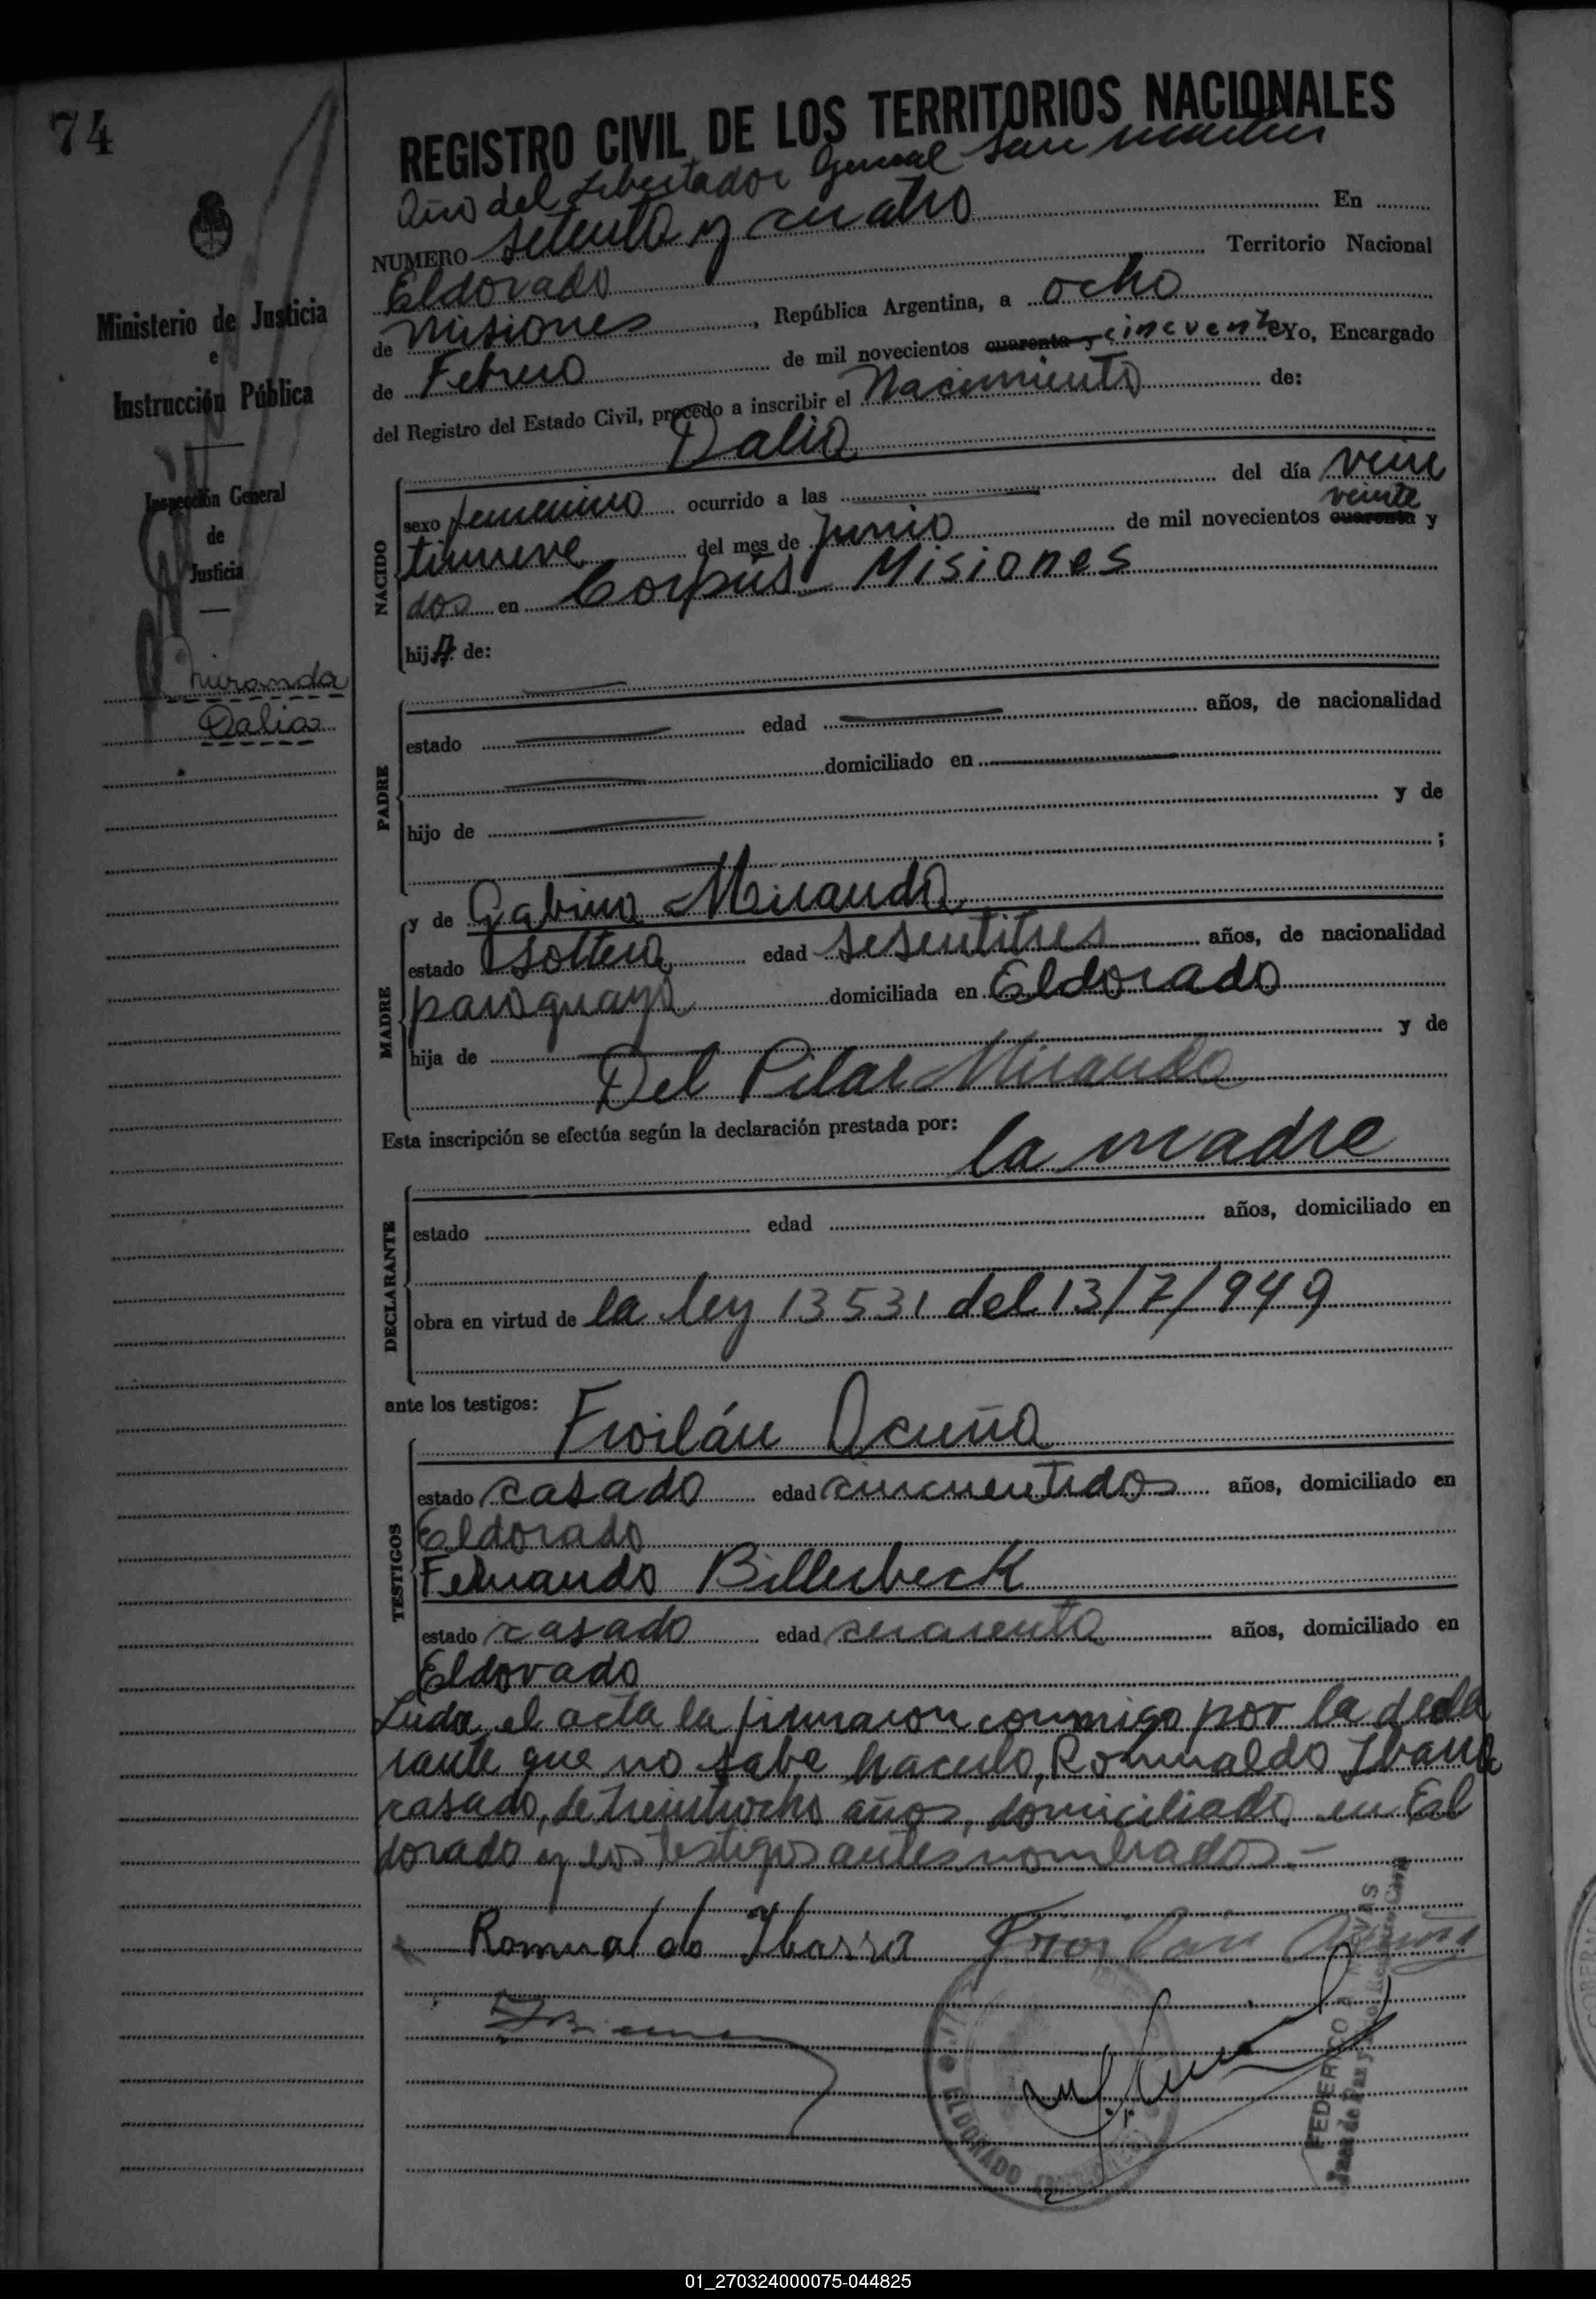 74
REGISTRO CIVIL DE LOS TERRITORIOS NACIONALES
Año del Libertador General San Martín
NUMERO setenta y cuatro En
Eldorado Territorio Nacional
de Misiones, República Argentina, a ocho
de Febrero de mil novecientos cuarenta y cincuenta Yo, Encargado
del Registro del Estado Civil, procedo a inscribir el Nacimiento de:
Dalia
Ministerio de Justicia
e
Instrucción Pública
Inspección General
de
Justicia
Miranda
Dalia
NACIDO
sexo femenino ocurrido a las del día vein
veinte
tinueve del mes de Junio de mil novecientos cuarenta y
dos en Corpus Misiones
hija de:
PADRE
estado edad años, de nacionalidad
domiciliado en
hijo de y de
;
MADRE
y de Gabina Miranda
estado soltera edad sesentitres años, de nacionalidad
paraguaya domiciliada en Eldorado
hija de y de
Del Pilar Miranda
Esta inscripción se efectúa según la declaración prestada por:
la madre
DECLARANTE
estado edad años, domiciliado en
obra en virtud de la ley 13531 del 13/7/949
ante los testigos:
Froilán Acuña
TESTIGOS
estado casado edad cincuentidos años, domiciliado en
Eldorado
Fernando Billerbeck
estado casado edad cuarenta años, domiciliado en
Eldorado
Leida el acta la firmaron conmigo por la decla
rante que no sabe hacerlo, Romualdo Ibarra
casado, de treintiocho años, domiciliado en El
dorado y los testigos antes nombrados.-
Romualdo Ibarra Froilan Acuña
ELDORADO
FEDERICO A.
Juez de Paz y
01_270324000075-044825